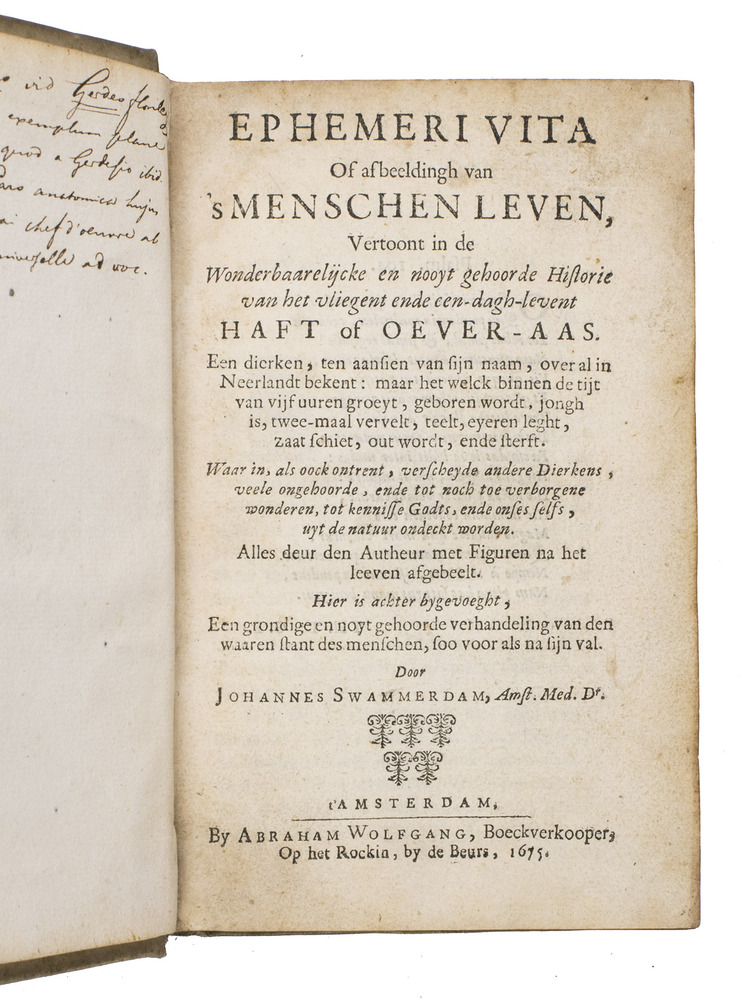 vid Gerdes florile
exemplum plane
quod a Gerdesio ibid.
anatomica hujus
chef d'oeuvre al
ad voc.
EPHEMERI VITA
Of afbeeldingh van
'sMENSCHEN LEVEN,
Vertoont in de
Wonderbaarelijcke en nooyt gehoorde Hiſtorie
van het vliegent ende een-dagh-levent
HAFT of OEVER-AAS.
Een dierken, ten aanſien van ſijn naam, over al in
Neerlandt bekent: maar het welck binnen de tijt
van vijf uuren groeyt, geboren wordt, jongh
is, twee-maal vervelt, teelt, eyeren leght,
zaat ſchiet, out wordt, ende ſterft.
Waar in, als oock ontrent, verſcheyde andere Dierkens,
veele ongehoorde, ende tot noch toe verborgene
wonderen, tot kenniſſe Godts, ende onſes ſelfs,
uyt de natuur ondeckt worden.
Alles deur den Autheur met Figuren na het
leeven afgebeelt.
Hier is achter bygevoeght,
Een grondige en noyt gehoorde verhandeling van den
waaren ſtant des menſchen, ſoo voor als na ſijn val.
Door
JOHANNES SWAMMERDAM, Amſt. Med. Dr.
t'AMSTERDAM,
By ABRAHAM WOLFGANG, Boeckverkooper,
Op het Rockin, by de Beurs, 1675.